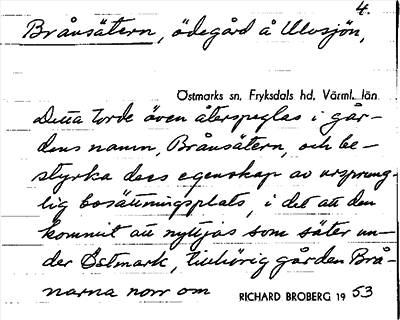 4.
Brånsätern, ödegård å Ulvsjön,
Östmarks sn, Fryksdals hd, Värml. län
Detta torde även återspeglas i går-
dens namn, Brånsätern, och be-
styrka dess egenskap av ursprung-
lig bosättningsplats, i det att den
kommit att nyttjas som säter un-
der Östmark, tillhörig gården Brå-
narna norr om
RICHARD BROBERG 19 53